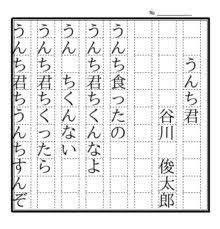 うんち君
谷川 俊太郎
うんち食ったの
うんち君ちくんなよ
うん ちくんない
うんち君ちくったら
うんち君ちうんちすんぞ